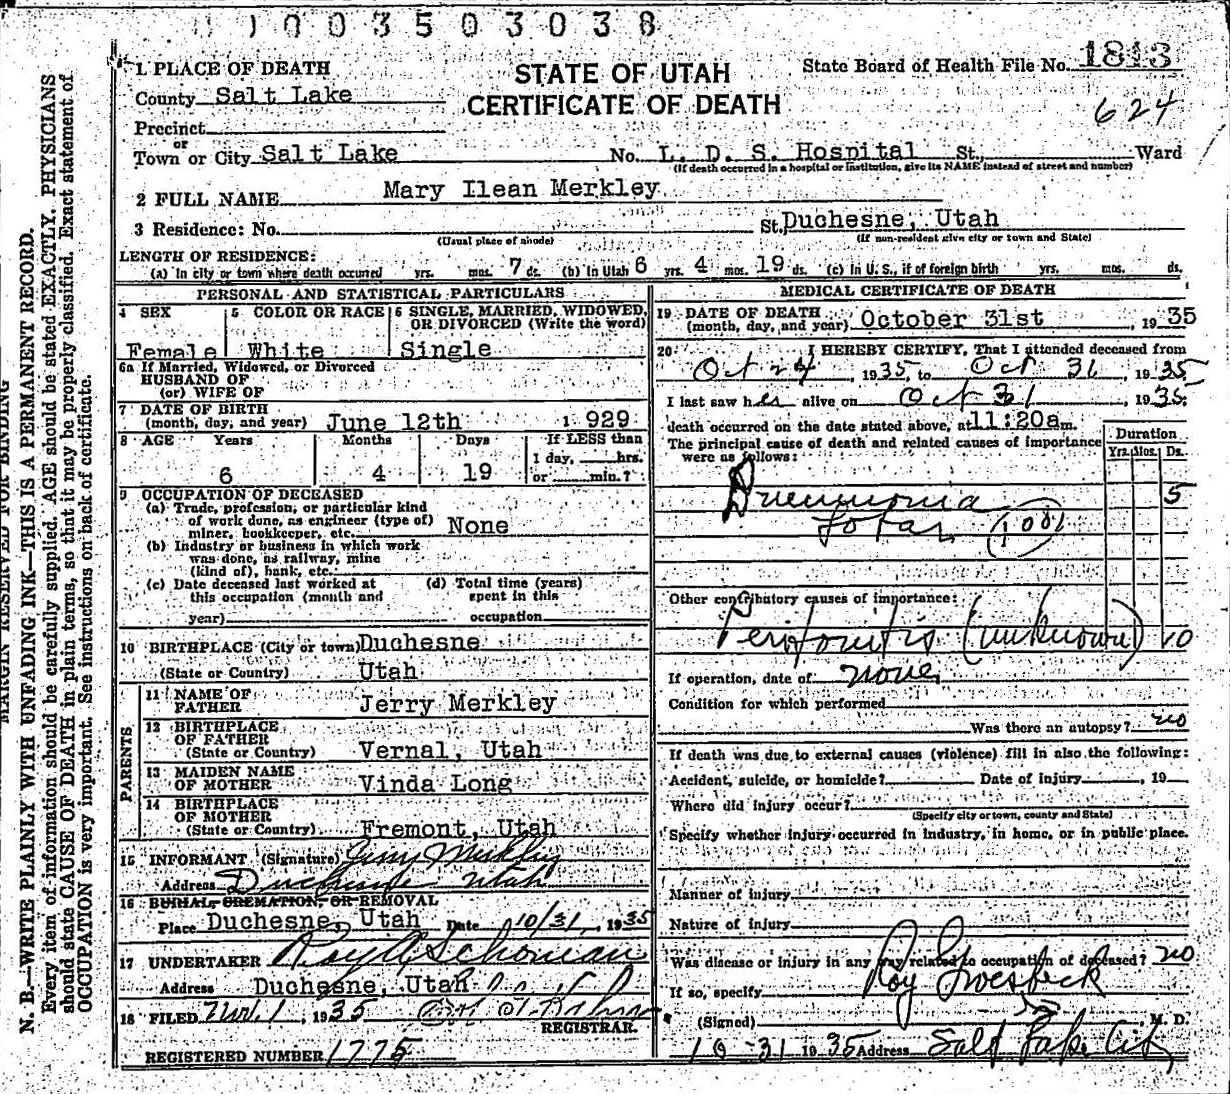 1003503038
1 PLACE OF DEATH
County Salt Lake
Precinct
or
Town or City Salt Lake
STATE OF UTAH
CERTIFICATE OF DEATH
State Board of Health File No. 1813
624
No. L. D. S. Hospital St., Ward
(If death occurred in a hospital or institution, give its NAME instead of street and number)
2 FULL NAME Mary Ilean Merkley
3 Residence: No. St. Duchesne, Utah
(Usual place of abode) (If non-resident give city or town and State)
LENGTH OF RESIDENCE:
(a) In city or town where death occurred yrs. mos. 7 ds. (b) In Utah 6 yrs. 4 mos. 19 ds. (c) In U. S., if of foreign birth yrs. mos. ds.
PERSONAL AND STATISTICAL PARTICULARS
4 SEX 5 COLOR OR RACE 6 SINGLE, MARRIED, WIDOWED,
OR DIVORCED (Write the word)
Female White Single
6a If Married, Widowed, or Divorced
HUSBAND OF
(or) WIFE OF
7 DATE OF BIRTH
(month, day, and year) June 12th 1929
8 AGE Years Months Days If LESS than
1 day, hrs.
6 4 19 or min.?
9 OCCUPATION OF DECEASED
(a) Trade, profession, or particular kind
of work done, as engineer (type of)
miner, bookkeeper, etc. None
(b) Industry or business in which work
was done, as railway, mine
(kind of), bank, etc.
(c) Date deceased last worked at (d) Total time (years)
this occupation (month and spent in this
year) occupation
10 BIRTHPLACE (City or town) Duchesne
(State or Country) Utah
PARENTS
11 NAME OF
FATHER Jerry Merkley
12 BIRTHPLACE
OF FATHER
(State or Country) Vernal, Utah
13 MAIDEN NAME
OF MOTHER Vinda Long
14 BIRTHPLACE
OF MOTHER
(State or Country) Fremont, Utah
15 INFORMANT (Signature) Jerry Merkley
Address Duchesne Utah
16 BURIAL, CREMATION, OR REMOVAL
Place Duchesne, Utah Date 10/31, 1935
17 UNDERTAKER
Address Duchesne, Utah
18 FILED Nov. 1, 1935
REGISTRAR.
REGISTERED NUMBER 1775
MEDICAL CERTIFICATE OF DEATH
19 DATE OF DEATH
(month, day, and year) October 31st, 1935
20 I HEREBY CERTIFY, That I attended deceased from
Oct 24, 1935, to Oct 31, 1935
I last saw her alive on Oct 31, 1935;
death occurred on the date stated above, at 11:20a m.
The principal cause of death and related causes of importance
were as follows:
Duration
Yrs. Mos. Ds.
Pneumonia 5
Lobar 108
Other contributory causes of importance:
Peritonitis (unknown) 10
If operation, date of none
Condition for which performed
Was there an autopsy? no
If death was due to external causes (violence) fill in also the following:
Accident, suicide, or homicide? Date of injury , 19
Where did injury occur?
(Specify city or town, county and State)
Specify whether injury occurred in industry, in home, or in public place.
Manner of injury
Nature of injury
Was disease or injury in any way related to occupation of deceased? no
If so, specify
(Signed) Roy Groesbeck M. D.
10-31 1935 Address Salt Lake City
MARGIN RESERVED FOR BINDING
N. B.—WRITE PLAINLY WITH UNFADING INK—THIS IS A PERMANENT RECORD.
Every item of information should be carefully supplied. AGE should be stated EXACTLY. PHYSICIANS
should state CAUSE OF DEATH in plain terms, so that it may be properly classified. Exact statement of
OCCUPATION is very important. See instructions on back of certificate.